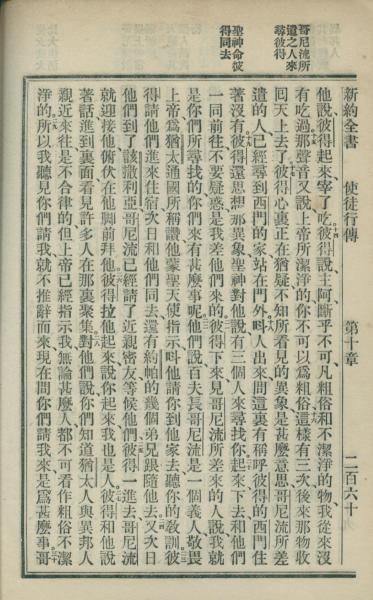 新約全書　使徒行傳　第十章　二百六十
哥尼流所
遣之人來
尋彼得
聖神命彼
得同去
他說彼得起來宰了吃彼得說主阿斷乎不可凡粗俗和不潔淨的物我從來沒
有吃過那聲音又說上帝所潔淨的你不可以爲粗俗這樣有三次後來那物收
囘天上去了彼得心裏正在猶疑不知所看見的異象是甚麼意思哥尼流所差
遣的人已經尋到西門的家站在門外呌人出來問這裏有稱呼彼得的西門住
著沒有彼得還思想那異象聖神對他說有三個人來尋找你起來下去和他們
一同前往不要疑惑是我差他們來的彼得下來見哥尼流所差來的人說我就
是你們所尋找的你們來有甚麼事呢他們說百夫長哥尼流是一個義人敬畏
上帝爲猶太通國所稱讚他蒙聖天使指示呌他請你到他家去聽你的敎訓彼
得請他們進來住宿次日和他們同去還有約帕的幾個弟兄跟隨他去又次日
他們到了該撒利亞哥尼流已經請了近親密友等候他們彼得一進去哥尼流
就迎接他俯伏在他脚前拜他彼得拉他起來說你起來我也是人彼得和他說
著話進到裏面看見許多人在那裏聚集對他們說你們知道猶太人與異邦人
親近來往是不合律的但上帝已經指示我無論甚麼人都不可看作粗俗不潔
淨的所以我聽見你們請我就不推辭而來現在問你們請我來是爲甚麼事哥